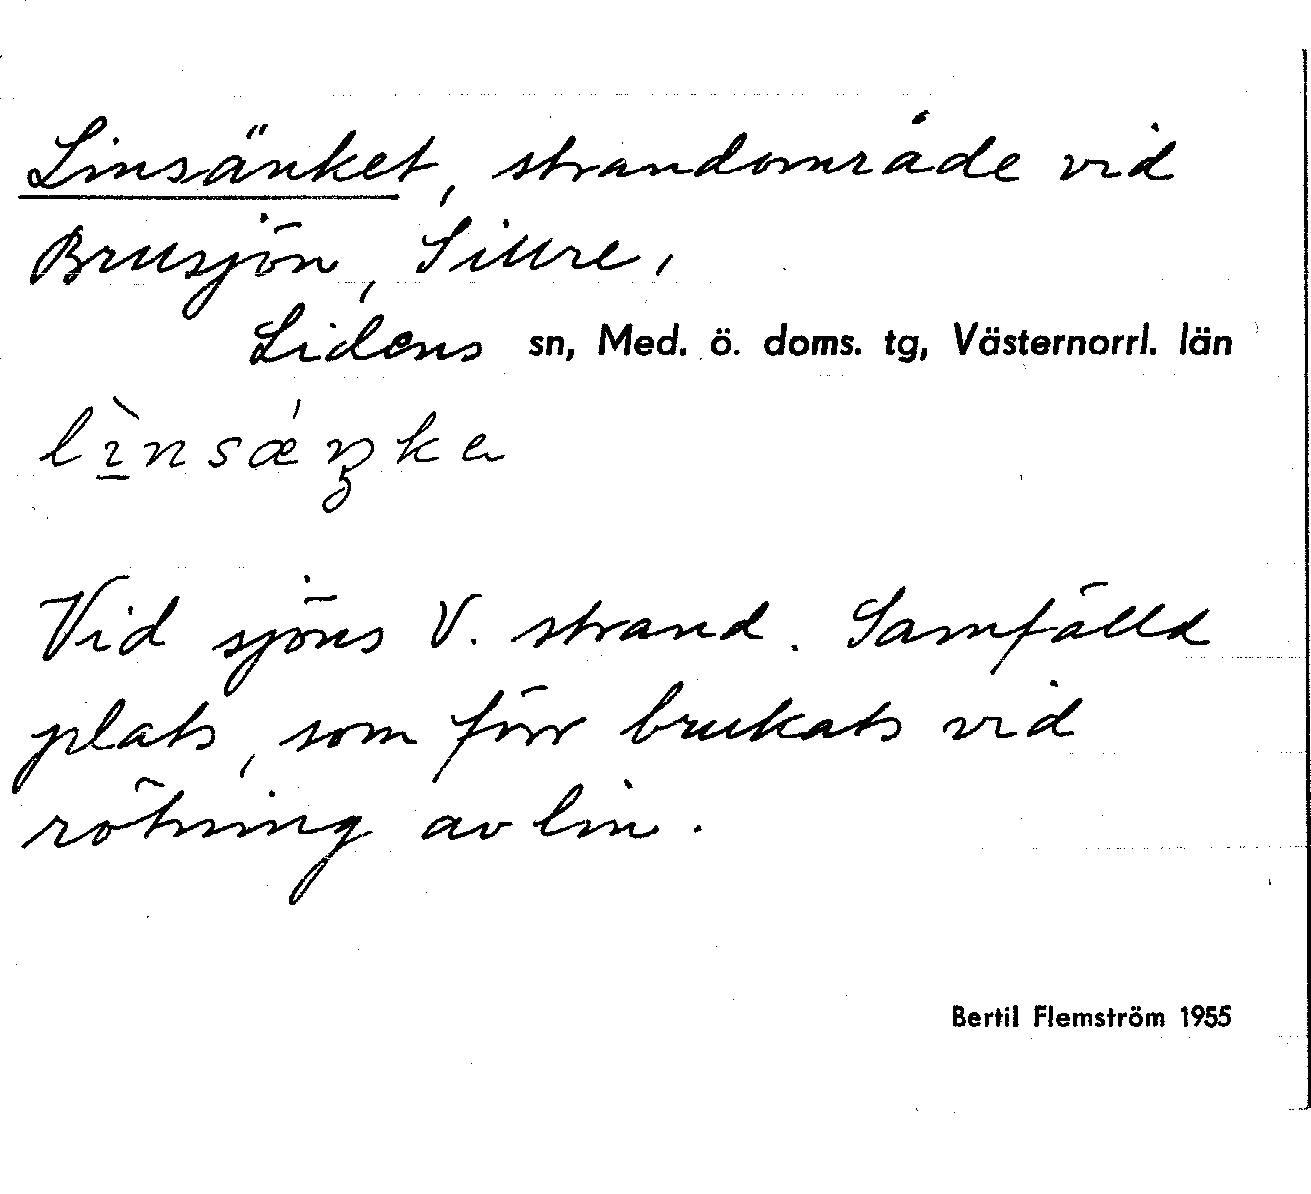 Linsänket, strandområde vid
Brusjön, Sillre,
Lidens sn, Med. ö. doms. tg, Västernorrl. län
lìnsǽŋka
Vid sjöns V. strand. Samfälld
plats, som förr brukats vid
rötning av lin.
Bertil Flemström 1955